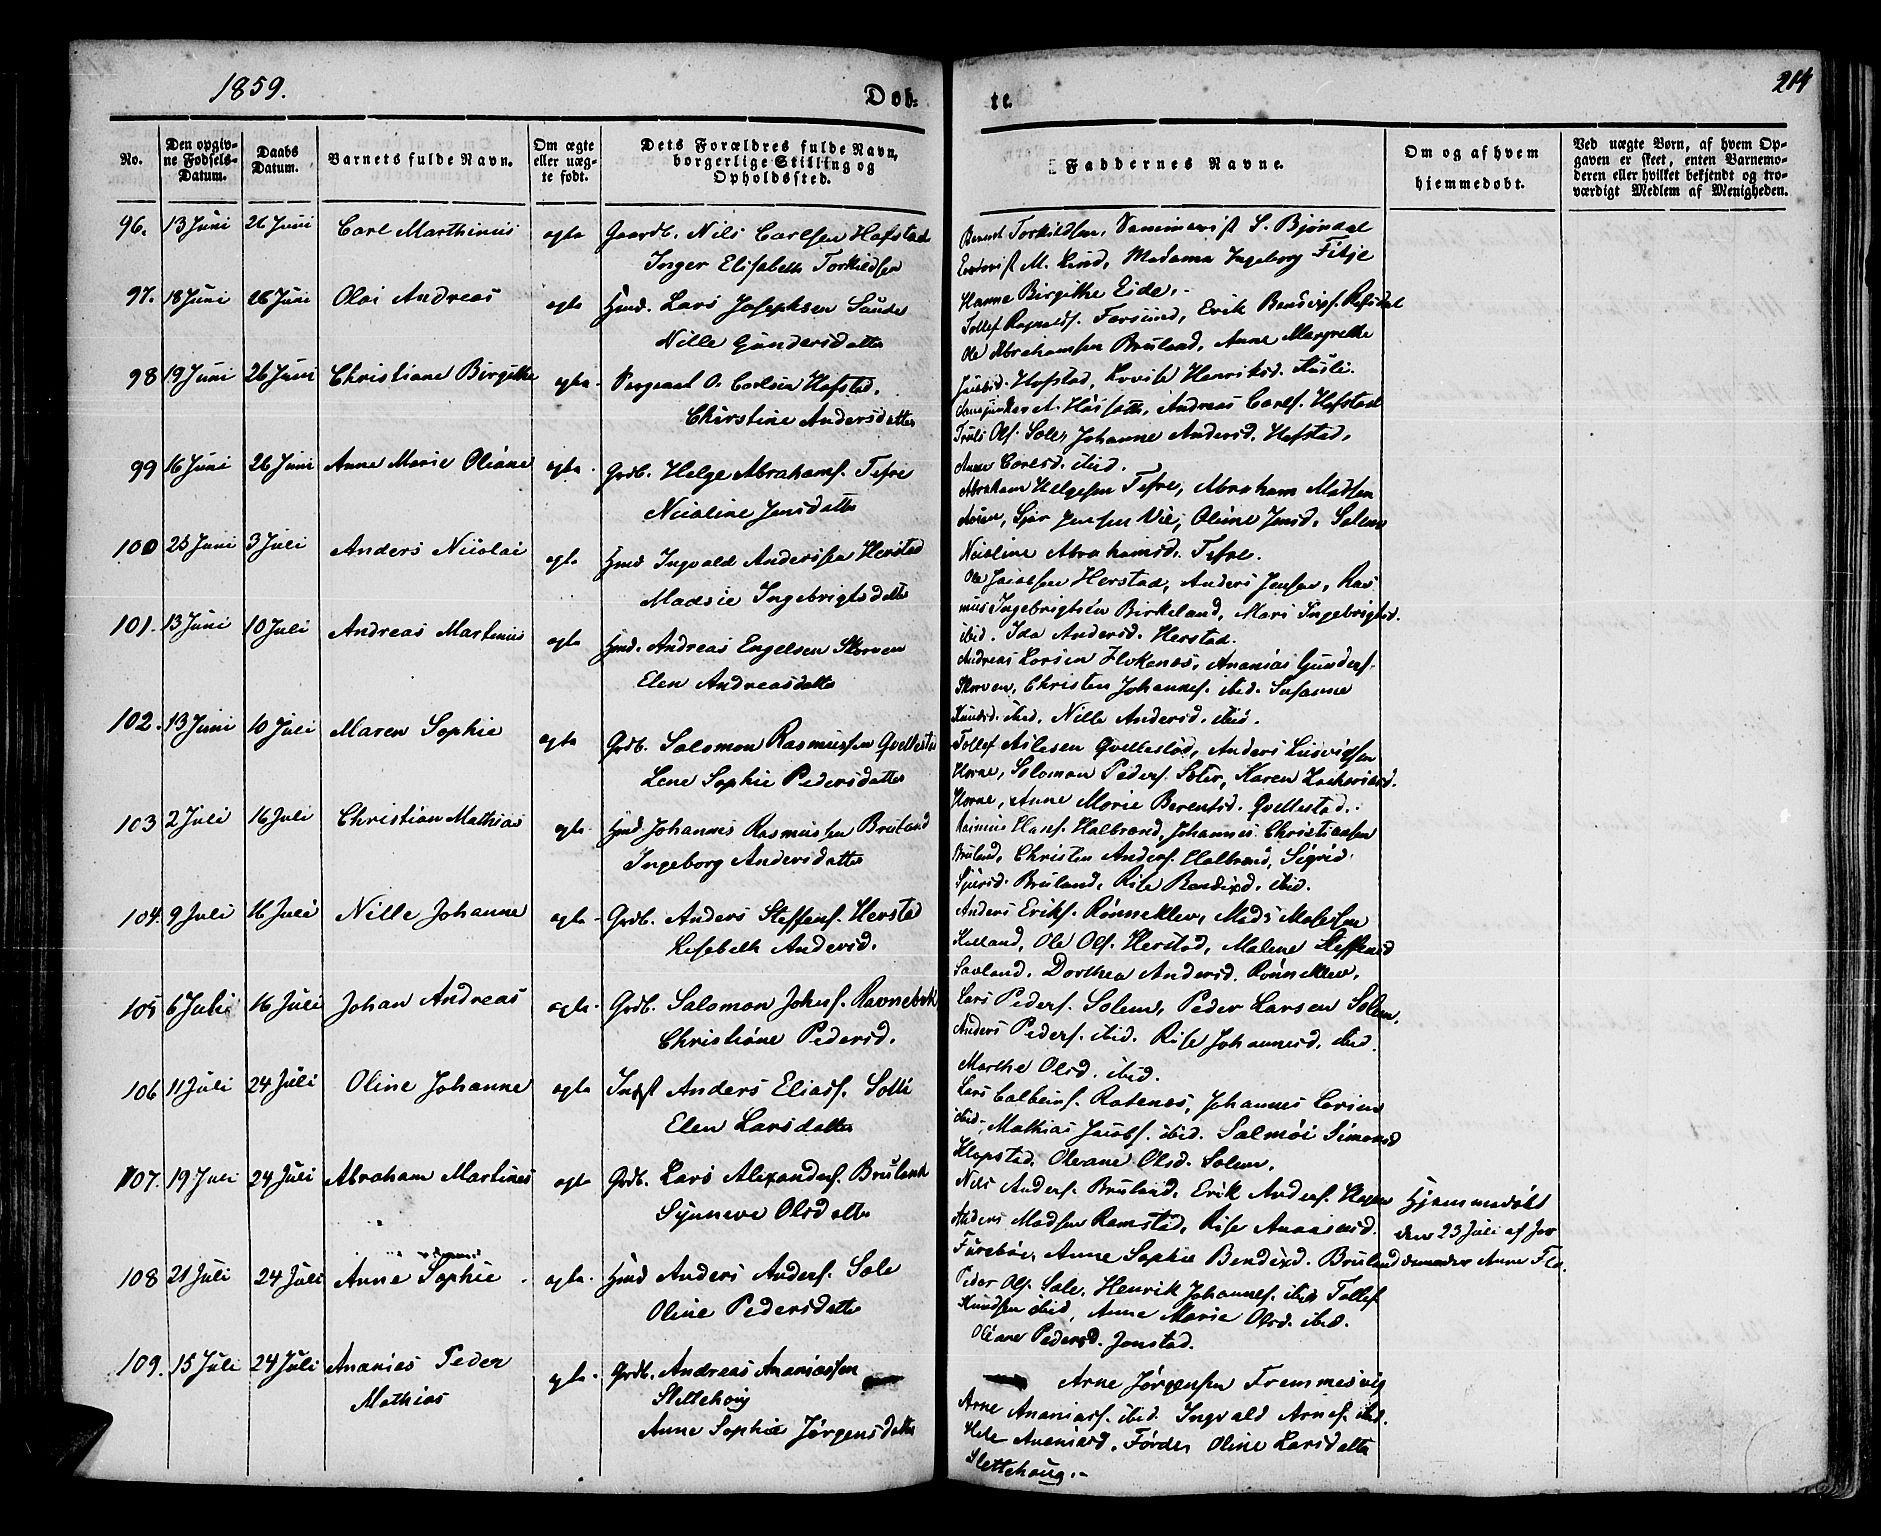 1859.
Døb-
te.
214
No.
Den opgiv-
ne Fødsels-
Datum.
Daabs
Datum.
Barnets fulde Navn.
Om ægte
eller uæg-
te født.
Dets Forældres fulde Navn,
borgerlige Stilling og
Opholdssted.
Faddernes Navne.
Om og af hvem
hjemmedøbt.
Ved uægte Børn, af hvem Op-
gaven er skeet, enten Barnemo-
deren eller hvilket bekjendt og tro-
værdigt Medlem af Menigheden.
96. 13 Juni 26 Juni Carl Marthinus ægte Gaardb. Nils Carlsen Hafstad
Inger Elisabeth Torkildsen
Berent Torkildsen, S. Bjøndal
M. Lind, Madama Ingeborg Fitje
Hanne Birgithe Eide.
97. 18 Juni 26 Juni Olai Andreas ægte Hmd. Lars Josephsen Sande
Nille Gundersdatter
Tollef Rognalds. Farsund, Erik Bendixs. Refsdal
Ole Abrahamsen Bruland, Anne Margrethe
Jacobsd. Hofstad, Lovise Henriksd. Husli.
98 19 Juni 26 Juni Christiane Birgithe ægte Sergeant O. Carlsen Hafstad.
Christine Andersdatter
A. Andreas Carls. Hafstad
Truls Ols. Sole, Johanne Andersd. Hafstad,
Anne Carlsd. ibid.
99 16 Juni 26 Juni Anne Marie Oliane ægte Grdb. Helge Abrahams. Tefre
Nicoline Jensdatter
Abraham Helgesen Tefre, Abraham Madsen
Jensen Vie, Oline Jensd. Solem
Nicoline Abrahamsd. Tefre.
100 25 Juni 3 Juli Anders Nicolai ægte Hmd Ingvald Anderssen Herstad
Madsie Ingebrigtsdatter
Ole Jacobsen Herstad, Anders Jensen, Ras
mus Ingebrigtsen Birkeland, Mari Ingebrigtsd.
ibid. Ida Andersd. Herstad.
101. 13 Juni 10 Juli Andreas Martinus ægte Hmd. Andreas Engelsen Skorven
Elen Andreasdatter
Andreas Larsen Flokenes, Ananias Gunders.
Skorven, Christen Johannes. ibid. Susanne
Knudsd. ibid, Nille Andersd. ibid.
102. 13 Juni 10 Juli Maren Sophie ægte Grdb. Salomon Rasmussen Qvellestad
Lene Sophie Pedersdatter
Tollef Aslesen Qvellestad, Anders Ludvigsen
Horne, Salomon Peders. Karen Zachariasd.
Horne, Anne Marie Berentsd. Qvellestad.
103 2 Juli 16 Juli Christian Mathias ægte Hmd Johannes Rasmussen Bruland
Ingeborg Andersdatter
Rasmus Hans. Halbrend, Johannes Christiansen
Bruland, Christen Anders. Halbrend, Sigrid
Sjursd. Bruland, Rise Bendixd. ibid.
104. 9 Juli 16 Juli Nille Johanne ægte Grdb. Anders Steffens. Herstad
Lisebeth Andersd.
Anders Eriks. Rønneklev, Mads Madssen
Kalland, Ole Ols. Herstad, Malene Steffensd
Savland, Dorthea Andersd. Rønneklev.
105 6 Juli 16 Juli Johan Andreas ægte Grdb. Salomon Johns. Ravnebek
Christiane Pedersd.
Lars Peders. Solem, Peder Larsen Solem,
Anders Peders. ibid. Rise Johannesd. ibid.
Marthe Olsd. ibid.
106 11 Juli 24 Juli Oline Johanne ægte Indst Anders Elias. Solli
Elen Larsdatter
Lars Colbeins. Ratenes, Johannes
ibid, Mathias Jacobs. ibid. Salmøi Simonsd
Klopstad, Olevane Olsd. Solem.
107. 19 Juli 24 Juli Abraham Martines ægte Grdb. Lars Alexanders. Bruland
Synneve Olsdatter
Nils Anders. Bruland, Erik Anders.
Anders Madsen Ramstad, Rise Ananiasd.
Furebøe, Anne Sophie Bendixd. Bruland
Hjemmedøbt
den 23 Juli af Jor
demoder Anne Flo.
108 21 Juli 24 Juli Anne Sophie ægte Hmd Anders Anders. Sole
Oline Pedersdatter
Peder Ols. Sole, Henrik Johannes. ibid Tollef
Knudsen ibid, Anne Marie Olsd. ibid.
Oliane Pedersd. Jonstad.
109. 15 Juli 24 Juli Ananias Peder
Mathias
ægte Grdb. Andreas Ananiassen
Slettehoug
Anne Sophie Jørgensdatter
Arne Jørgensen Fremmesvig
Arne Ananias. ibid. Ingvald Arnes. ibid.
Ananiasd. Førde, Oline Larsdatter
Slettehoug.